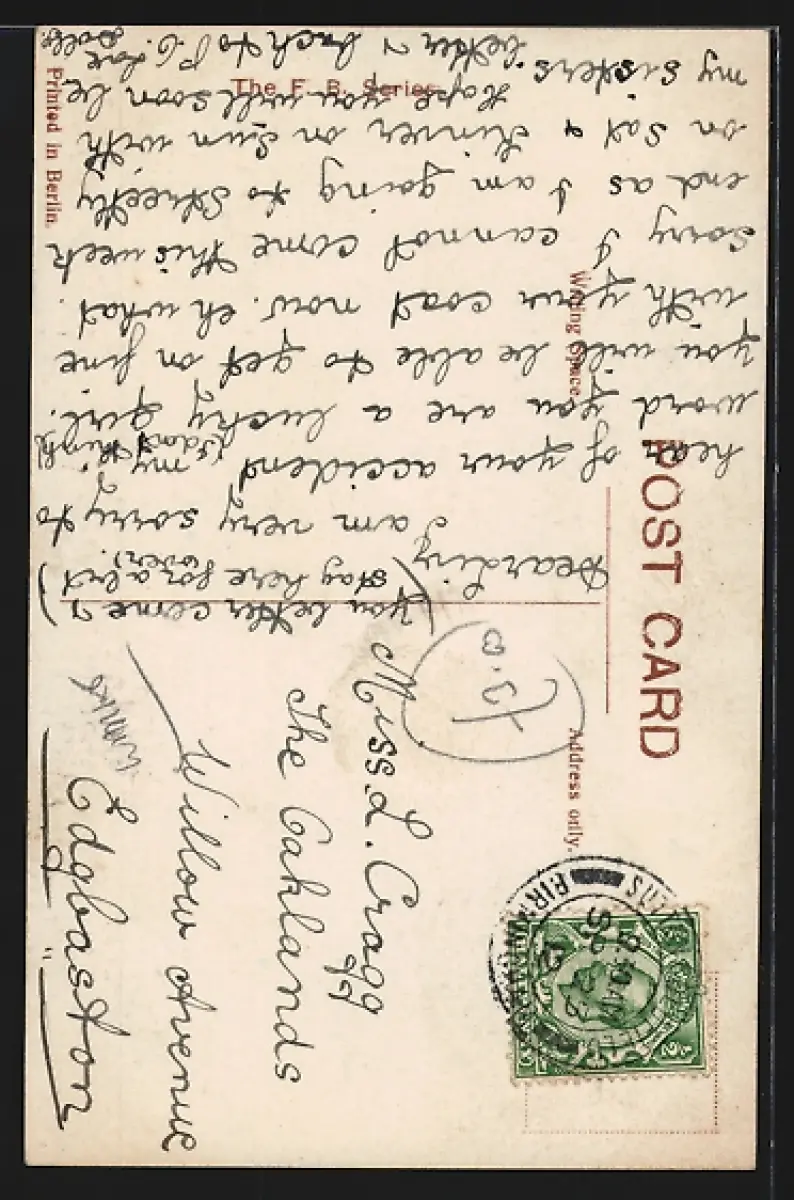 POST CARD
The F. B. Series
Writing Space.
Address only.
Printed in Berlin.
(you better come &
stay here for a bit
over.)
Dearling
I am very sorry to
hear of your accident my
(I don't think)
word you are a lucky girl.
you will be able to get on fine
with your coat now. eh what.
Sorry I cannot come this week
end as I am going to Streetly
on Sat & Kinver on Sun with
my sisters. Hope you will soon be
better & back to P. C. Love
Dolly
Miss L. Cragg
The Oaklands
Willow Avenue
Edgbaston
BIRMINGHAM
SP 22
12